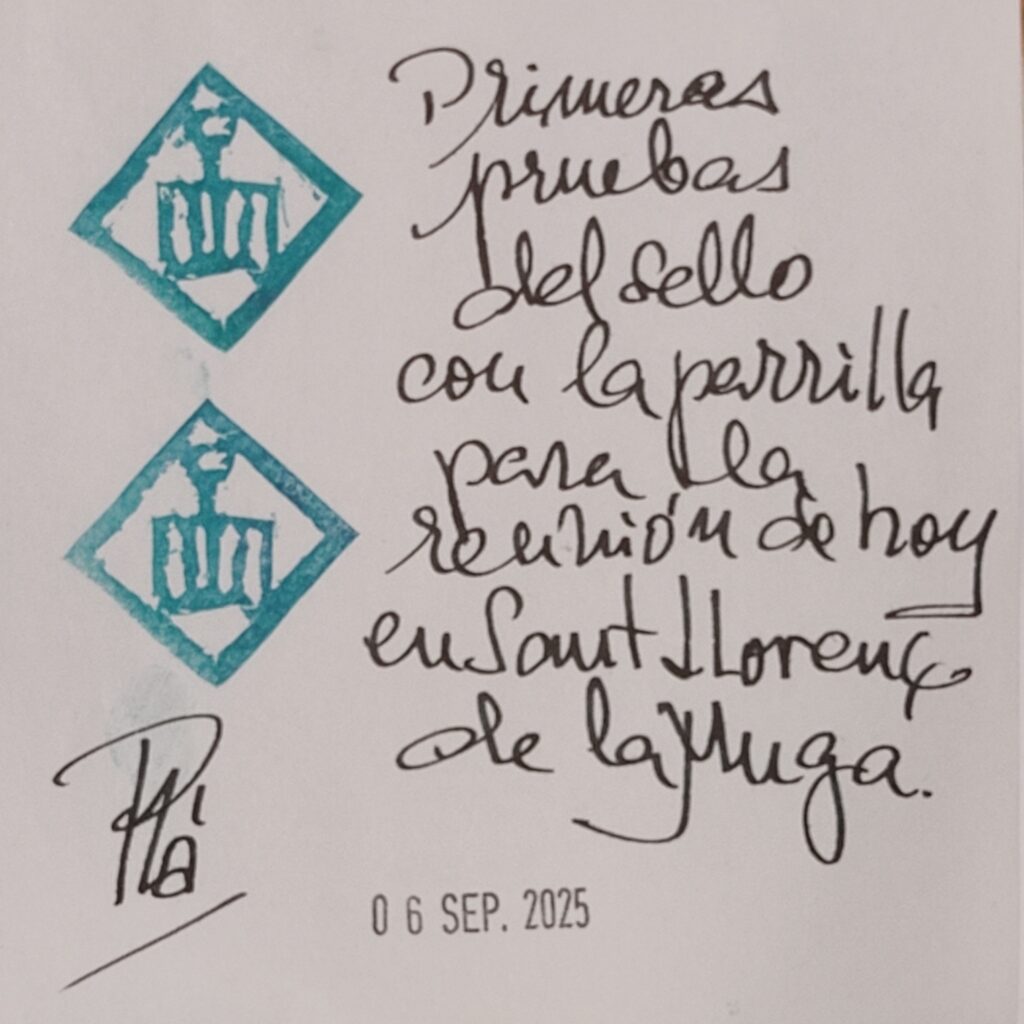 Primeras
pruebas
del sello
con la parrilla
para la
reunión de hoy
en Sant Llorenç
de la Muga.
Plà
06 SEP. 2025